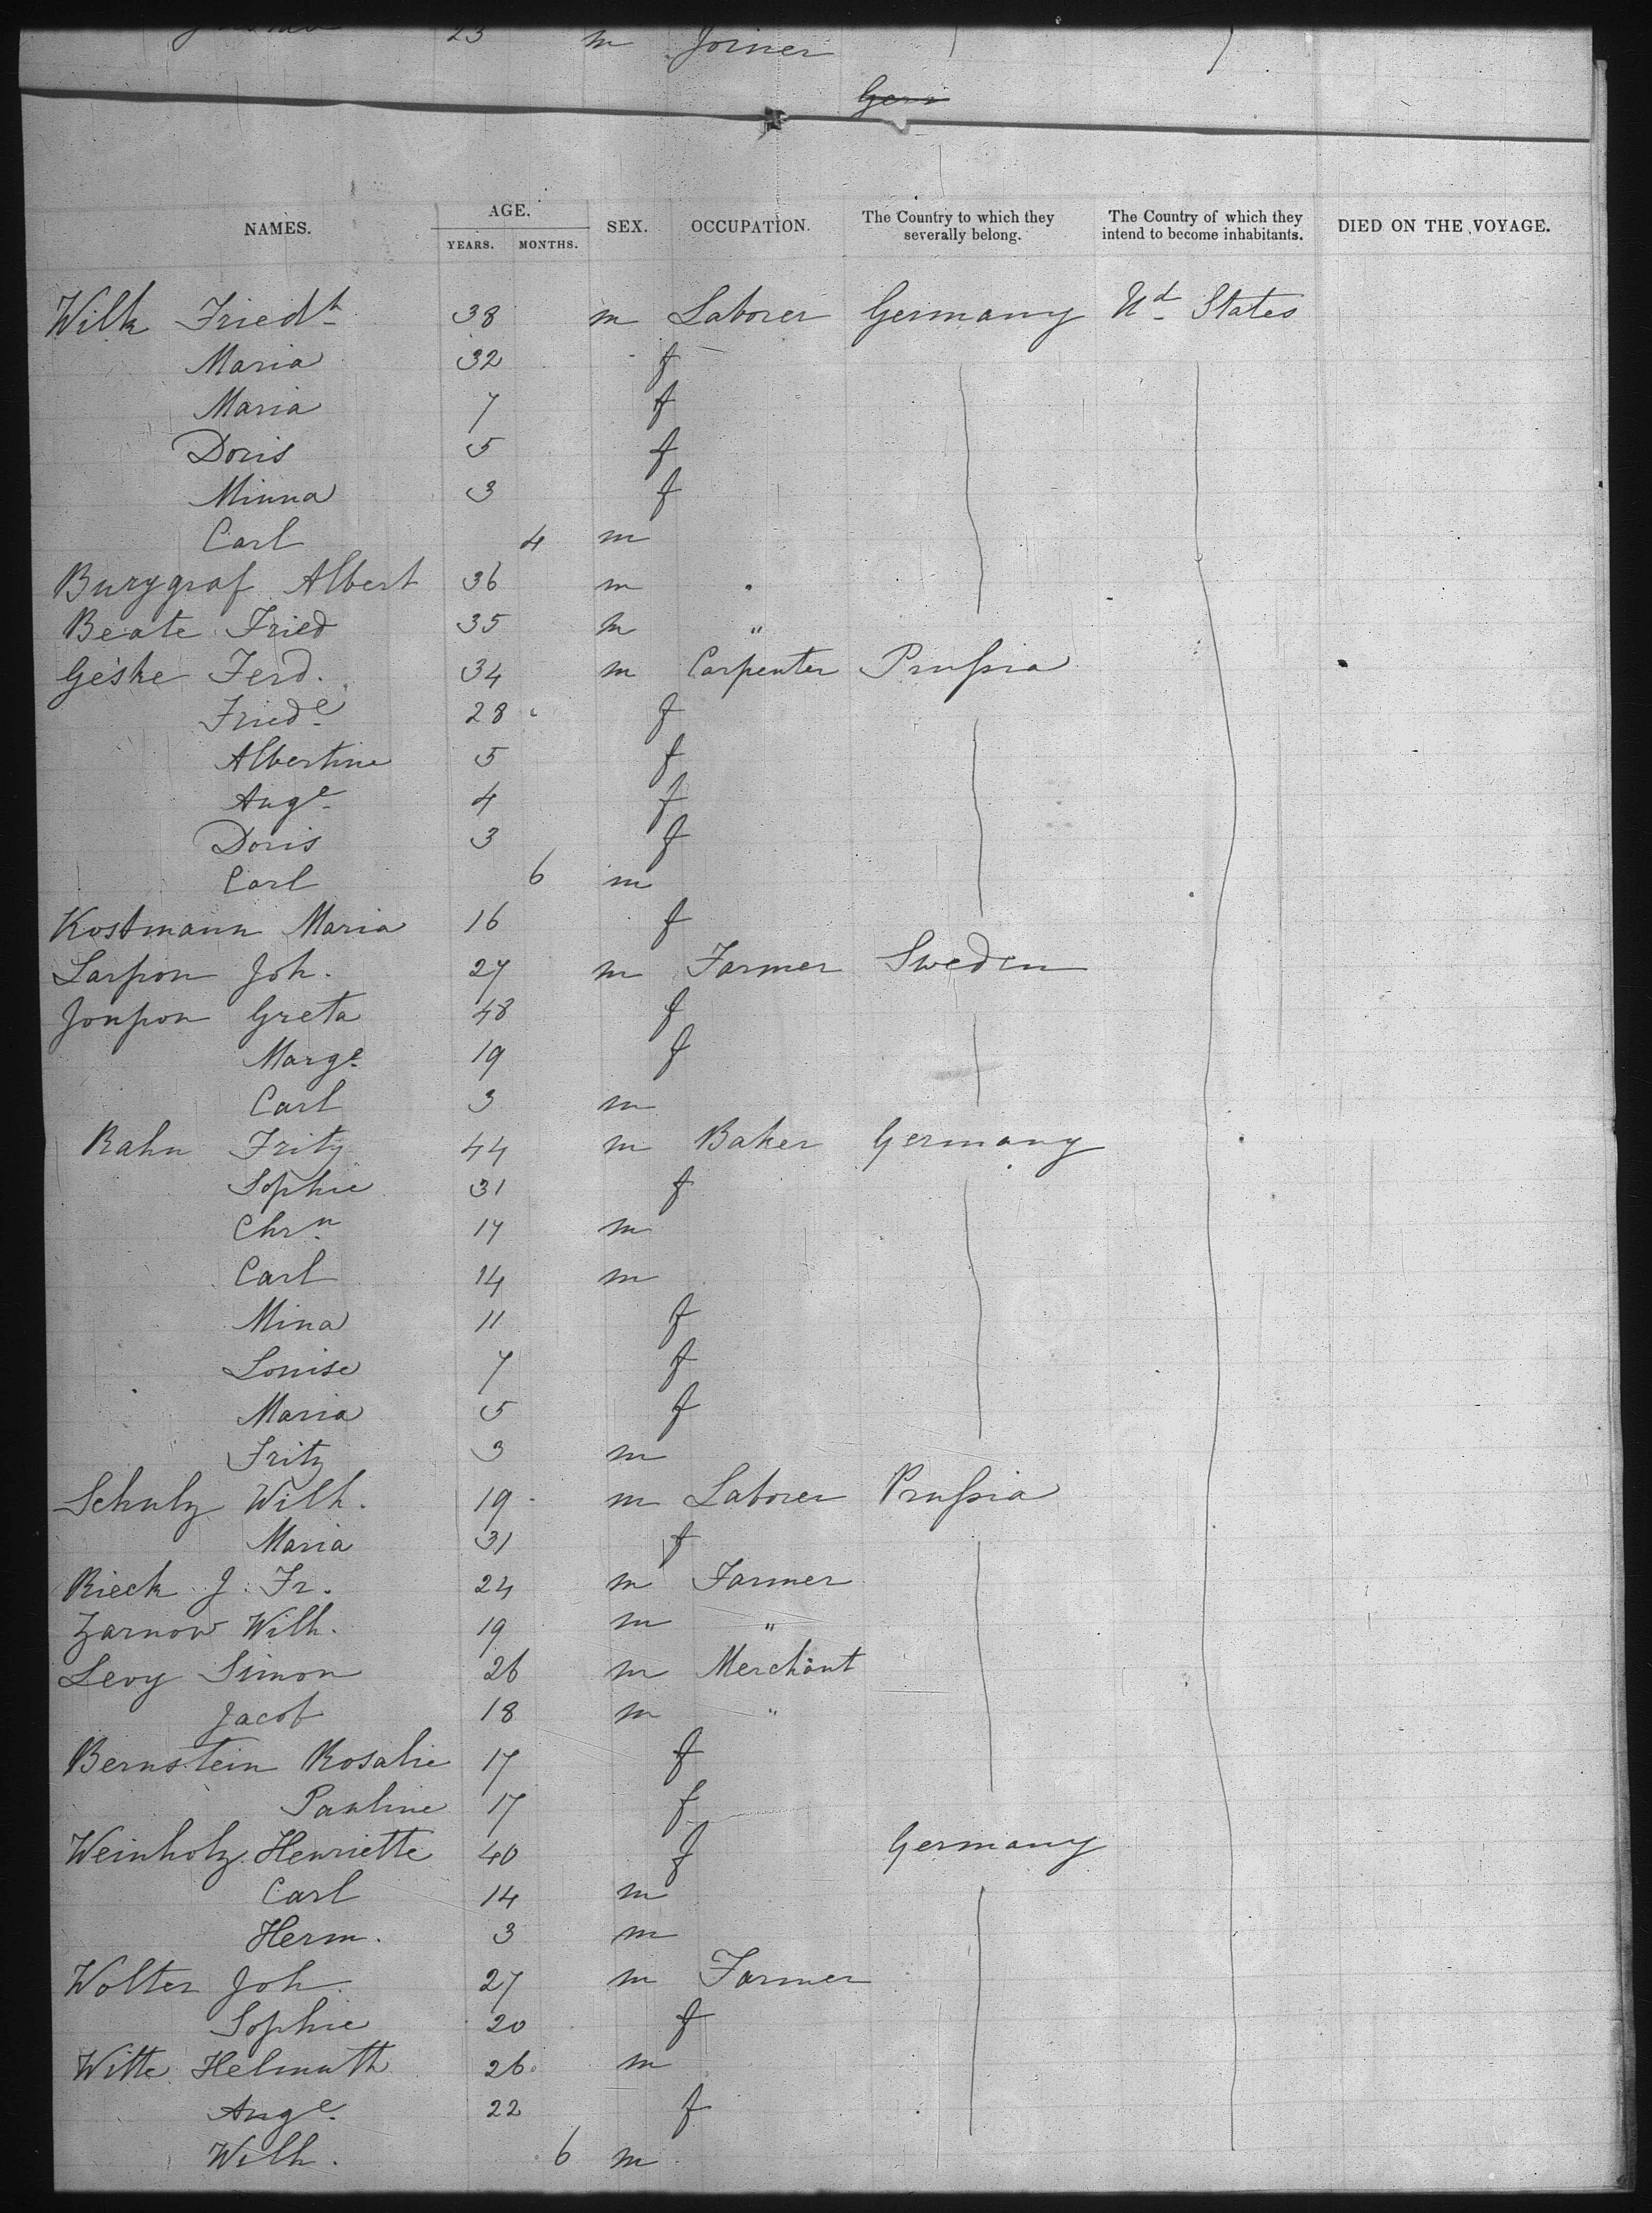 23 m Joiner
Ger
NAMES. AGE. YEARS. MONTHS. SEX. OCCUPATION. The Country to which they severally belong. The Country of which they intend to become inhabitants. DIED ON THE VOYAGE.
Wilk Friedh 38 m Laborer Germany Ud States
Maria 32 f
Maria 7 f
Doris 5 f
Minna 3 f
Carl 4 m
Burggraf Albert 36 m "
Beate Fried 35 m "
Geske Ferd. 34 m Carpenter Prussia
Friede 28 f
Albertine 5 f
Auge 4 f
Doris 3 f
Carl 6 m
Kostmann Maria 16 f
Larsson Joh. 27 m Farmer Sweden
Jonsson Greta 48 f
Marge 19 f
Carl 3 m
Rahn Fritz 44 m Baker Germany
Sophie 31 f
Chrn 17 m
Carl 14 m
Mina 11 f
Louise 7 f
Maria 5 f
Fritz 3 m
Schulz Wilh. 19 m Laborer Prussia
Maria 31 f
Rieck J. Fr. 24 m Farmer
Zarnow Wilh. 19 m "
Levy Simon 26 m Merchant
Jacob 18 m "
Bernstein Rosalie 17 f
Pauline 17 f
Weinholz Henriette 40 f Germany
Carl 14 m
Herm. 3 m
Wolter Joh. 27 m Farmer
Sophie 20 f
Witte Helmuth 26 m
Auge 22 f
Wilh. 6 m